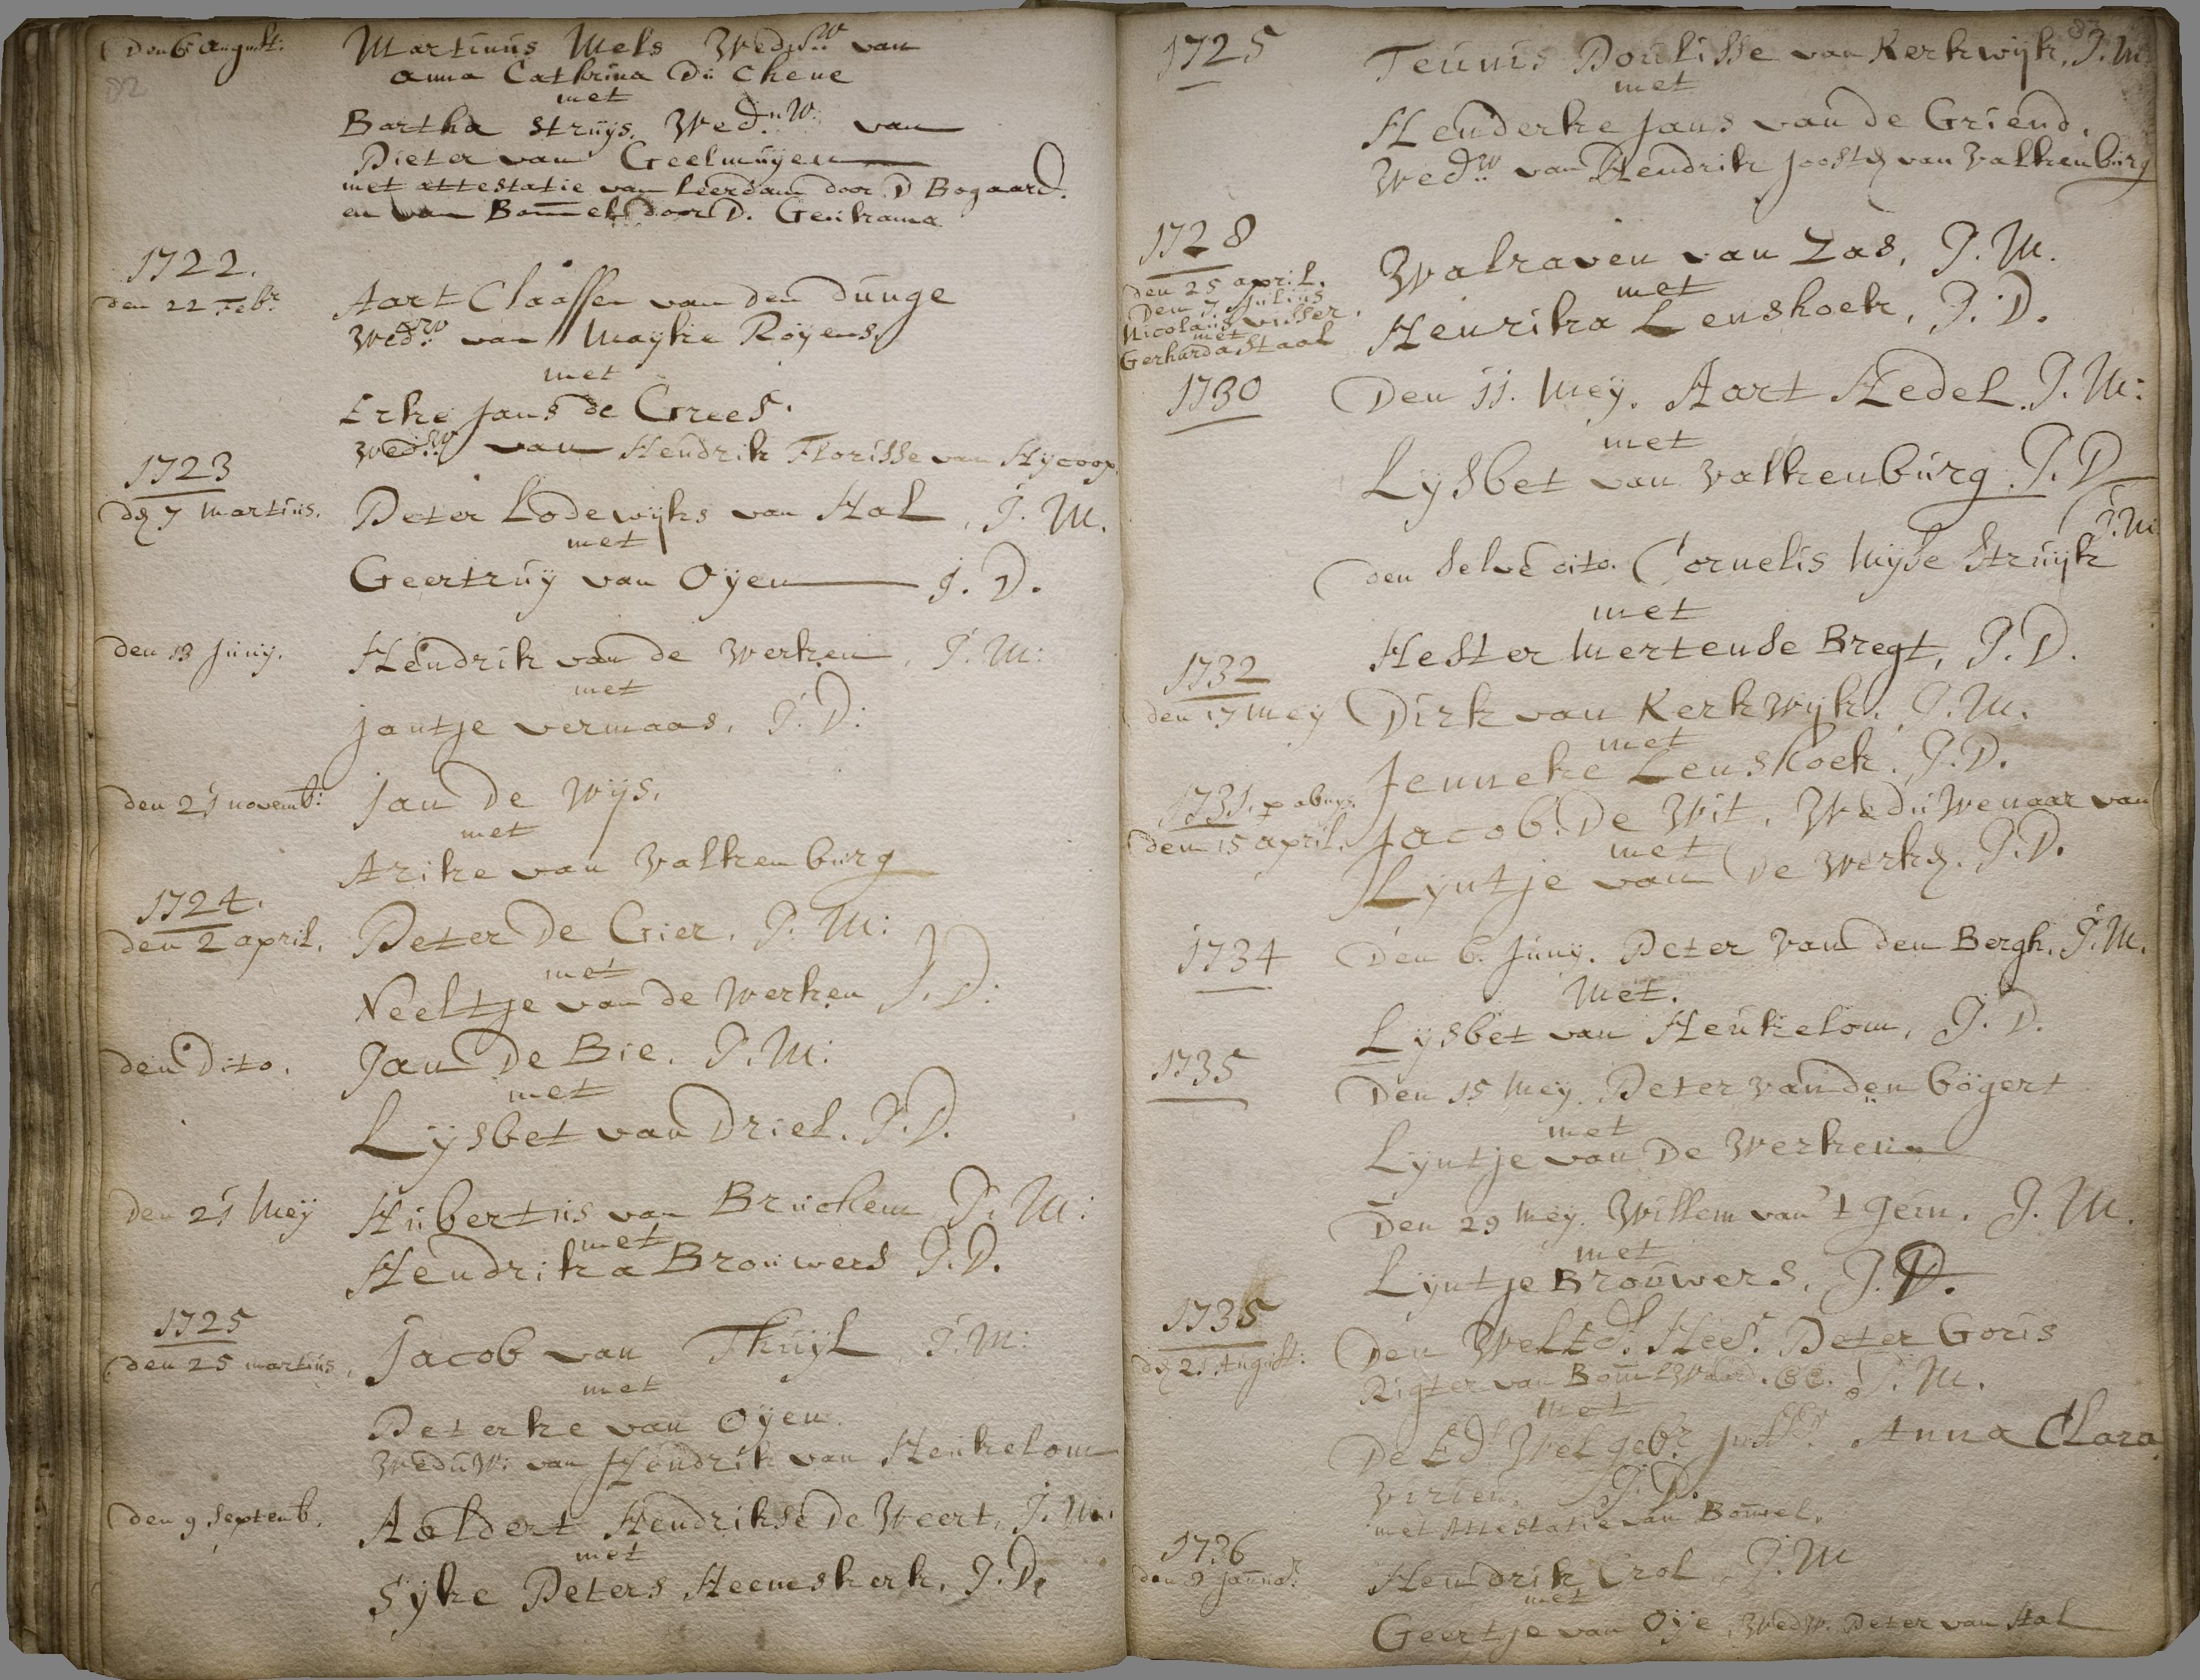 82
Den 6 August:
Martinus Mels Wedwr van
anna Cathrina Du Chene
met
Bartha Struijs. Wed.uw: van
Pieter van Geelmuijen
met attestatie van Leerdam door D Bogaard.
en van Bomel door D.
1722.
den 22 Febr
Aart Claassen van den dunge
Wedr van Mayke Royens
met
Erke Jans de Grees.
Wedw van Hendrik Florisse van Hycoop.
1723
dn 7 Martius.
Peter Lodewijks van Hal, J. M.
met
Geertruij van Oijen J. D.
den 13 Junij.
Hendrik van de Werken, J. M:
met
Jantje vermaas, J. D:
den 21 novemb:
Jan De Wijs,
met
Arike van Valkenburg
1724.
den 2 april.
Peter De Gier, J. M:
met
Neeltje van de Werken J. D:
den Dito.
Jan De Bie. J. M:
met
Lijsbet van Driel. J. D.
Den 21 Meij
Hubertus van Bruchem J. M:
met
Hendrika Brouwers J. D.
1725
den 25 martius,
Jacob van Thuijl, J. M:
met
Peterke van Oijen.
Weduw: van Hendrik van Heukelom
den 9 Septemb.
Aaldert Hendrikse De Weert, J. M.
met
Sijke Peters Heemskerk, J. D.
83
1725
Teunis Doulisse van Kerkwijk, J. M.
met
Henderke Jans van de Griend.
Wedw van Hendrik Joosten van Valkenburg
1728
den 25 april.
Walraven van Zas, J. M.
met
Henrika Lenshoek, J. D.
Den 7. Julius
Nicolaus Visser.
met
Gerharda Staal
1730
Den 11. Meij. Aart Hedel. J. M:
met
Lijsbet van Valkenburg. J. D.
J. M.
den selve dito. Cornelis Wijse Struijk
met
Hester Mertense Bregt, J. D.
1732
den 17 Meij
Dirk van Kerkwijk. J. M.
met
Jenneke Lenshoek. J. D.
1731. p abuys.
den 15 april.
Jacob De Wit. Weduwenaar van
met
Lyntje van De Werkn. J. D.
1734
Den 6. Junij. Peter van den Bergh. J. M.
Met.
Lijsbet van Heukelom, J. D.
1735
Den 15 Meij. Peter van den bögert
met
Lyntje van De Werken
Den 29 Meij. Willem van 't Gein. J. M.
met
Lyntje Brouwers, J. D.
1735
dn 21 August:
Den WelEd. Heer Peter Goris
Rigter van Bomelwaard. J. M.
met
De Ed. Wel gebr Anna Clara
J. D.
met Attestatie van Bomel.
1736
den 9 Januar:
Hendrik Crol J. M
met
Geertje van Oije, Wedw. Peter van Hal